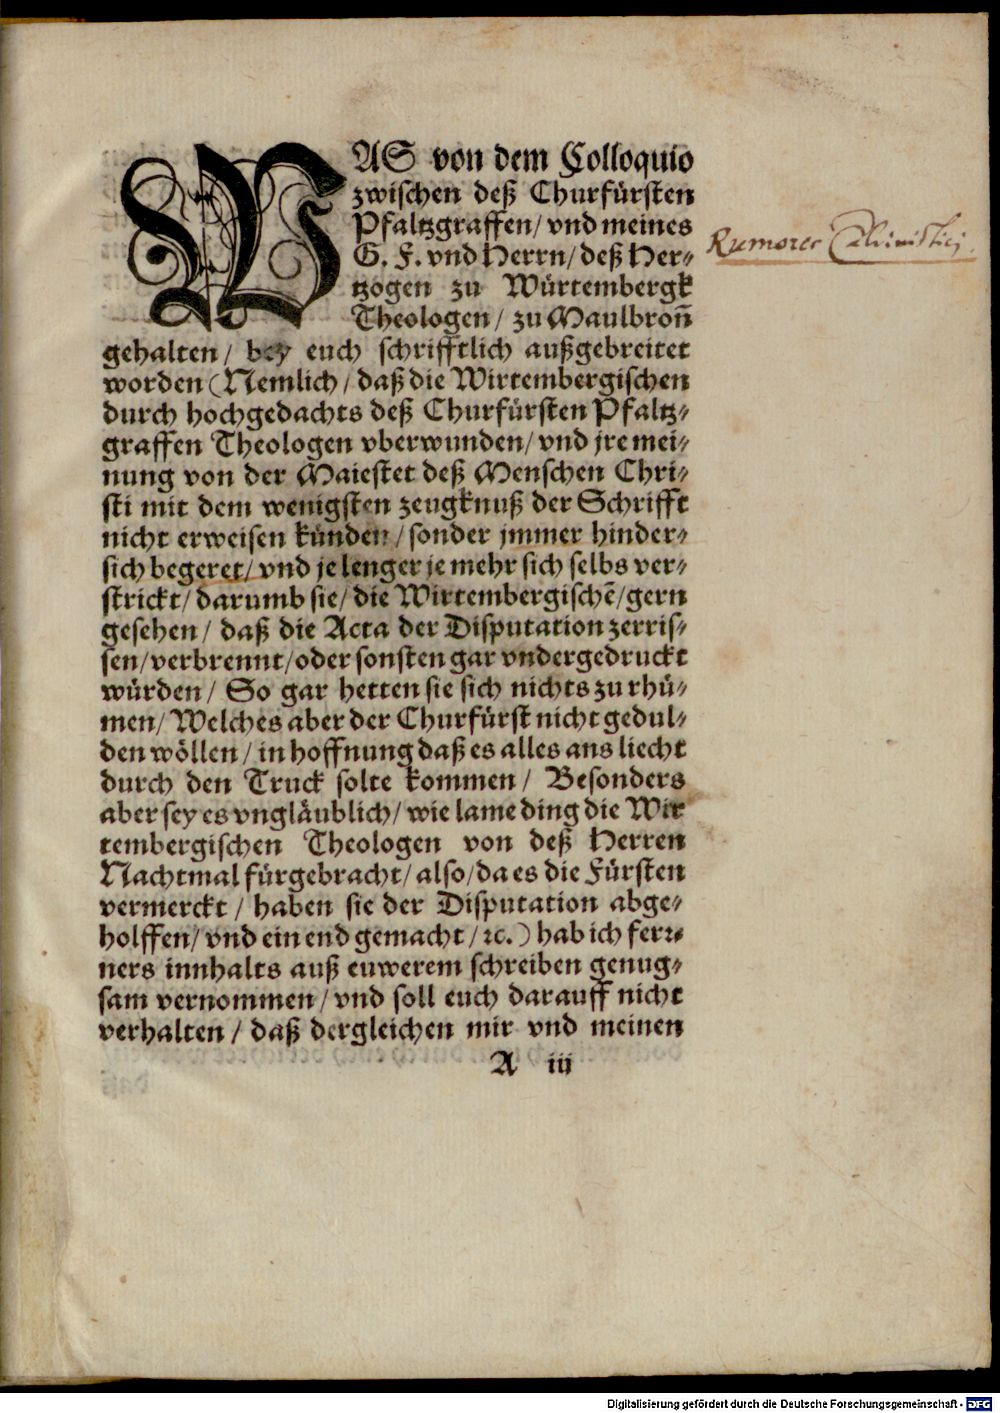 WAS von dem Colloquio
zwischen deß Churfürsten
Pfaltzgraffen/ vnd meines
G. F. vnd Herrn/ deß Her-
tzogen zu Würtembergk
Theologen/ zu Maulbroñ
gehalten/ bey euch schrifftlich außgebreitet
worden (Nemlich/ daß die Wirtembergischen
durch hochgedachts deß Churfürsten Pfaltz-
graffen Theologen vberwunden/ vnd jre mei-
nung von der Maiestet deß Menschen Chri-
sti mit dem wenigsten zeugknuß der Schrifft
nicht erweisen künden/ sonder jmmer hinder-
sich begeret/ vnd je lenger je mehr sich selbs ver-
strickt/ darumb sie/ die Wirtembergischẽ/ gern
gesehen/ daß die Acta der Disputation zerris-
sen/ verbrennt/ oder sonsten gar vndergedruckt
würden/ So gar hetten sie sich nichts zu rhü-
men/ Welches aber der Churfürst nicht gedul-
den wöllen/ in hoffnung daß es alles ans liecht
durch den Truck solte kommen/ Besonders
aber sey es vngläublich/ wie lame ding die Wir
tembergischen Theologen von deß Herren
Nachtmal fürgebracht/ also/ da es die Fürsten
vermerckt/ haben sie der Disputation abge-
holffen/ vnd ein end gemacht/ ꝛc.) hab ich fer:-
ners innhalts auß euwerem schreiben genug-
sam vernommen/ vnd soll euch darauff nicht
verhalten/ daß dergleichen mir vnd meinen
A iii
Rumores Calvinistici.
Digitalisierung gefördert durch die Deutsche Forschungsgemeinschaft - DFG